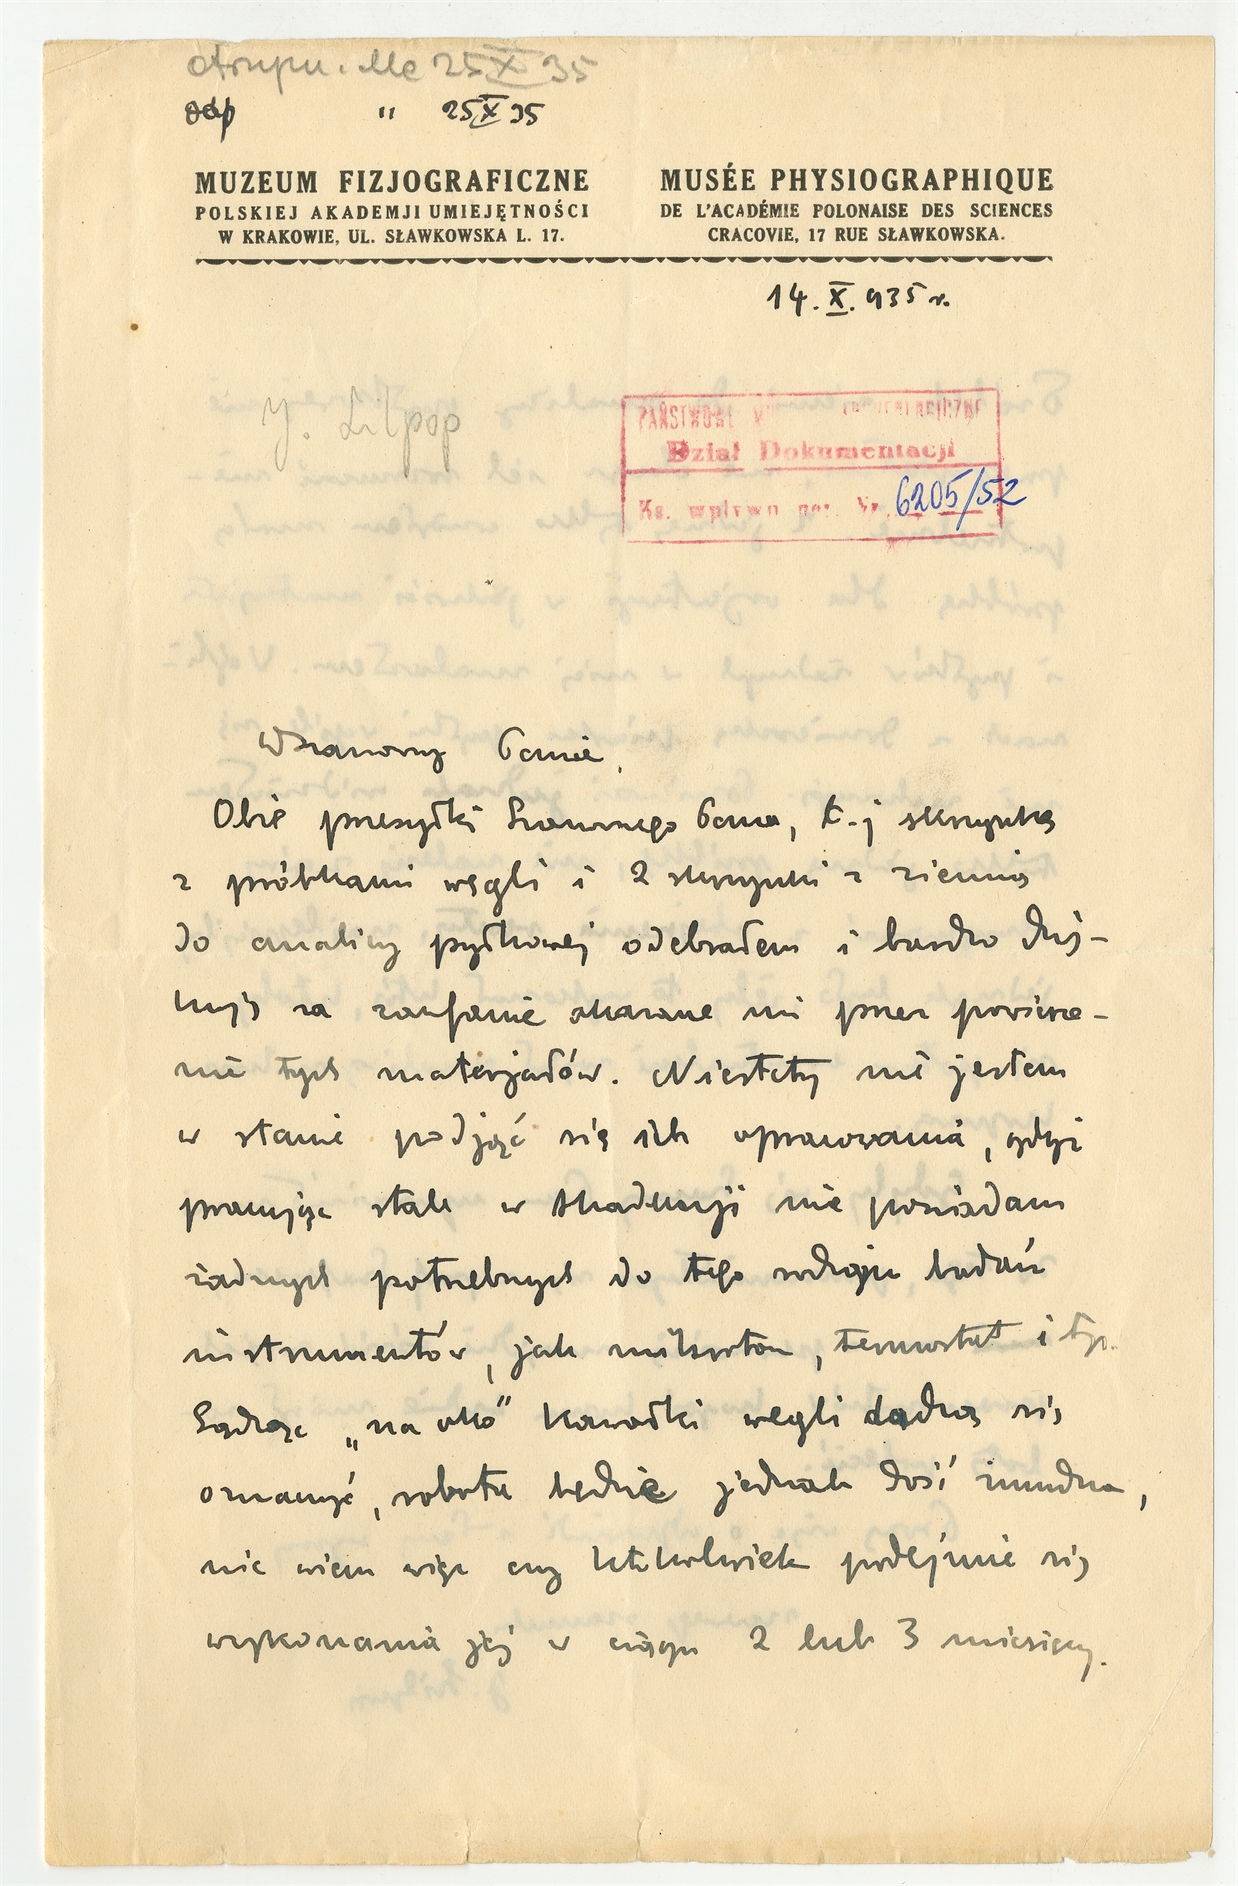 otrzym. 25 X 35
odp " 25 X 35
MUZEUM FIZJOGRAFICZNE
POLSKIEJ AKADEMJI UMIEJĘTNOŚCI
W KRAKOWIE, UL. SŁAWKOWSKA L. 17.
MUSÉE PHYSIOGRAPHIQUE
DE L'ACADÉMIE POLONAISE DES SCIENCES
CRACOVIE, 17 RUE SŁAWKOWSKA.
14. X. 935 r.
J. Lilpop
PAŃSTWOWE MUZEUM ARCHEOLOGICZNE
Dział Dokumentacji
Ks. wpływu Nr. 6205/52
Szanowny Panie,
Obie przesyłki Szanownego Pana, t.j skrzynkę
z próbkami węgli i 2 skrzynki z ziemią
do analizy pyłkowej odebrałem i bardzo dzię-
kuję za zaufanie okazane mi przez powierze-
nie tych materjałów. Niestety nie jestem
w stanie podjąć się ich opracowania, gdyż
pracując stale w Akademji nie posiadam
żadnych potrzebnych do tego rodzaju badań
instrumentów, jak mikrotom, termostat i tp.
Sądząc „na oko" kawałki węgli dadzą się
oznaczyć, robota będzie jednak dość żmudna,
nie wiem więc czy ktokolwiek podejmie się
wykonania jej w ciągu 2 lub 3 miesięcy.